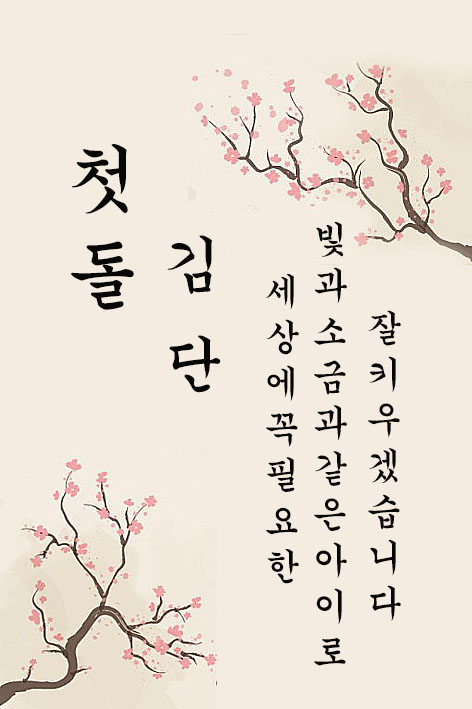 첫돌
김단
세상에꼭필요한
빛과소금과같은아이로
잘키우겠습니다